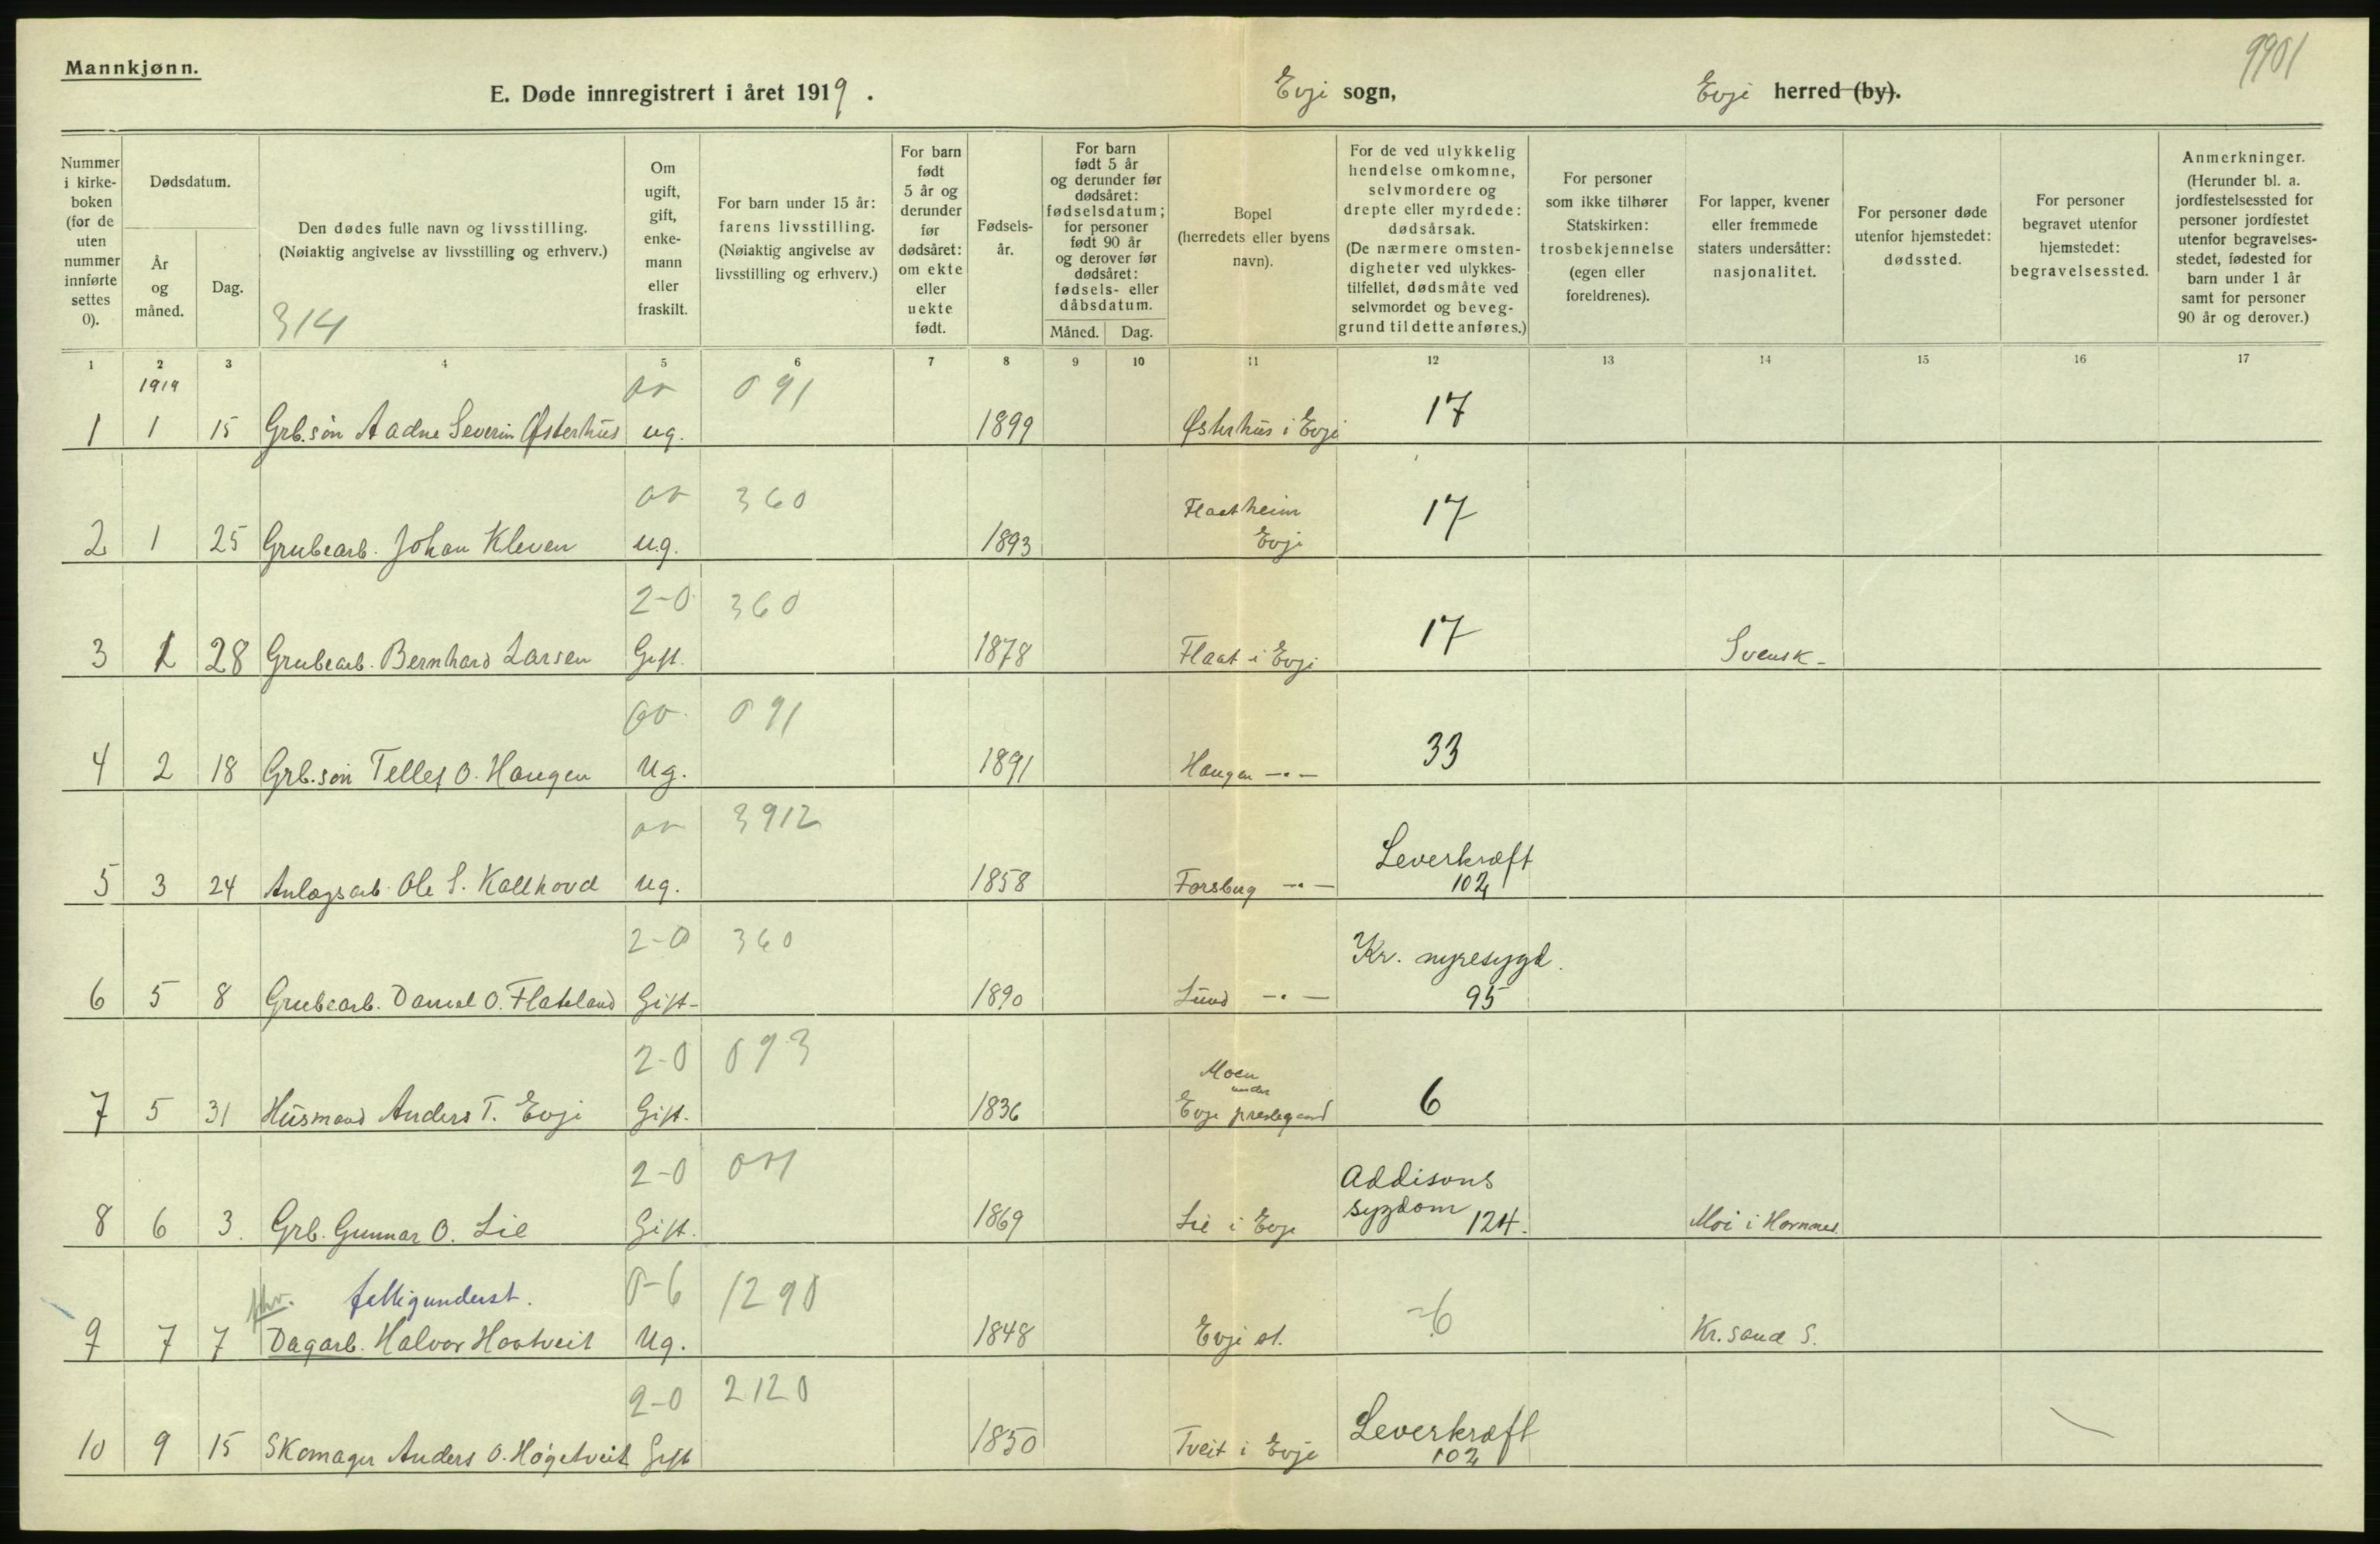 9901
Mannkjønn.
E. Døde innregistrert i året 1919. Evje sogn, Evje herred (by).
Nummer i kirke-boken (for de uten nummer innførte settes 0).
Dødsdatum.
År og måned.
Dag.
Den dødes fulle navn og livsstilling.
(Nøiaktig angivelse av livsstilling og erhverv.)
314
Om ugift, gift, enke-mann eller fraskilt.
For barn under 15 år: farens livsstilling. (Nøiaktig angivelse av livsstilling og erhverv.)
For barn født 5 år og derunder før dødsåret: om ekte eller uekte født.
Fødsels-år.
For barn født 5 år og derunder før dødsåret: fødselsdatum; for personer født 90 år og derover før dødsåret: fødsels- eller dåbsdatum.
Måned. Dag.
Bopel (herredets eller byens navn).
For de ved ulykkelig hendelse omkomne, selvmordere og drepte eller myrdede: dødsårsak. (De nærmere omsten-digheter ved ulykkes-tilfellet, dødsmåte ved selvmordet og beveg-grund til dette anføres.)
For personer som ikke tilhører Statskirken: trosbekjennelse (egen eller foreldrenes).
For lapper, kvener eller fremmede staters undersåtter: nasjonalitet.
For personer døde utenfor hjemstedet: dødssted.
For personer begravet utenfor hjemstedet: begravelsessted.
Anmerkninger. (Herunder bl. a. jordfestelsessted for personer jordfestet utenfor begravelses-stedet, fødested for barn under 1 år samt for personer 90 år og derover.)
1 2 3 4 5 6 7 8 9 10 11 12 13 14 15 16 17
1919
091
1 1 15 Grb.søn Aadne Severin Østerhus ug. 1899 Østerhus i Evje 17
360
2 1 25 Grubearb. Johan Kleven ug. 1893 Flaatheim Evje 17
2-0 360
3 1 28 Grubearb. Bernhard Larsen Gift. 1878 Flaat i Evje 17 Svensk-
091
4 2 18 Grb.søn Tellef O. Haugen Ug. 1891 Haugen -"- 33
3912
5 3 24 Anlægsarb. Ole S. Kallhovd ug. 1858 Forsberg -"- Leverkræft 102
2-0 360
6 5 8 Grubearb. Daniel O. Flateland Gift- 1890 Lund -"- Kr. nyresygd. 95
2-0 093
7 5 31 Husmand Anders T. Evje Gift. 1836 Moen under Evje prestegaard 6
2-0
8 6 3. Grb. Gunnar O. Lie Gift. 1869 Lie i Evje Addisons sygdom 124. Moi i Hornnes.
fattigunderst. 0-6 1290
9 7 7 Dagarb. Halvor Hovtveit Ug. 1848 Evje st. 6 Kr.sand S.
2-0 2120
10 9 15 Skomager Anders O. Høgetveit Gift 1850 Tveit i Evje Leverkræft 102